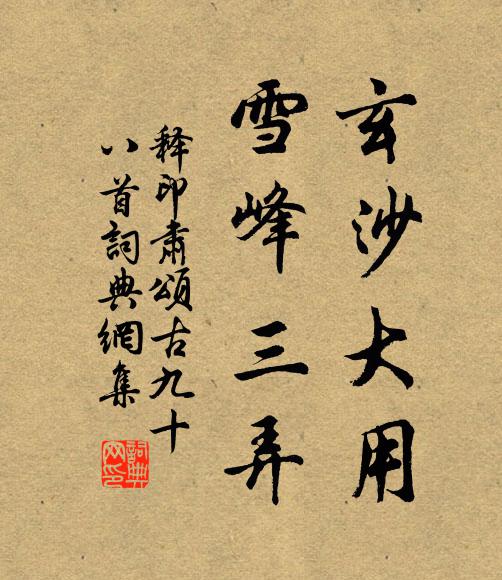 玄沙大用
雪峰三弄
释印肃頌古九十
八首詞典網集
詞典网印